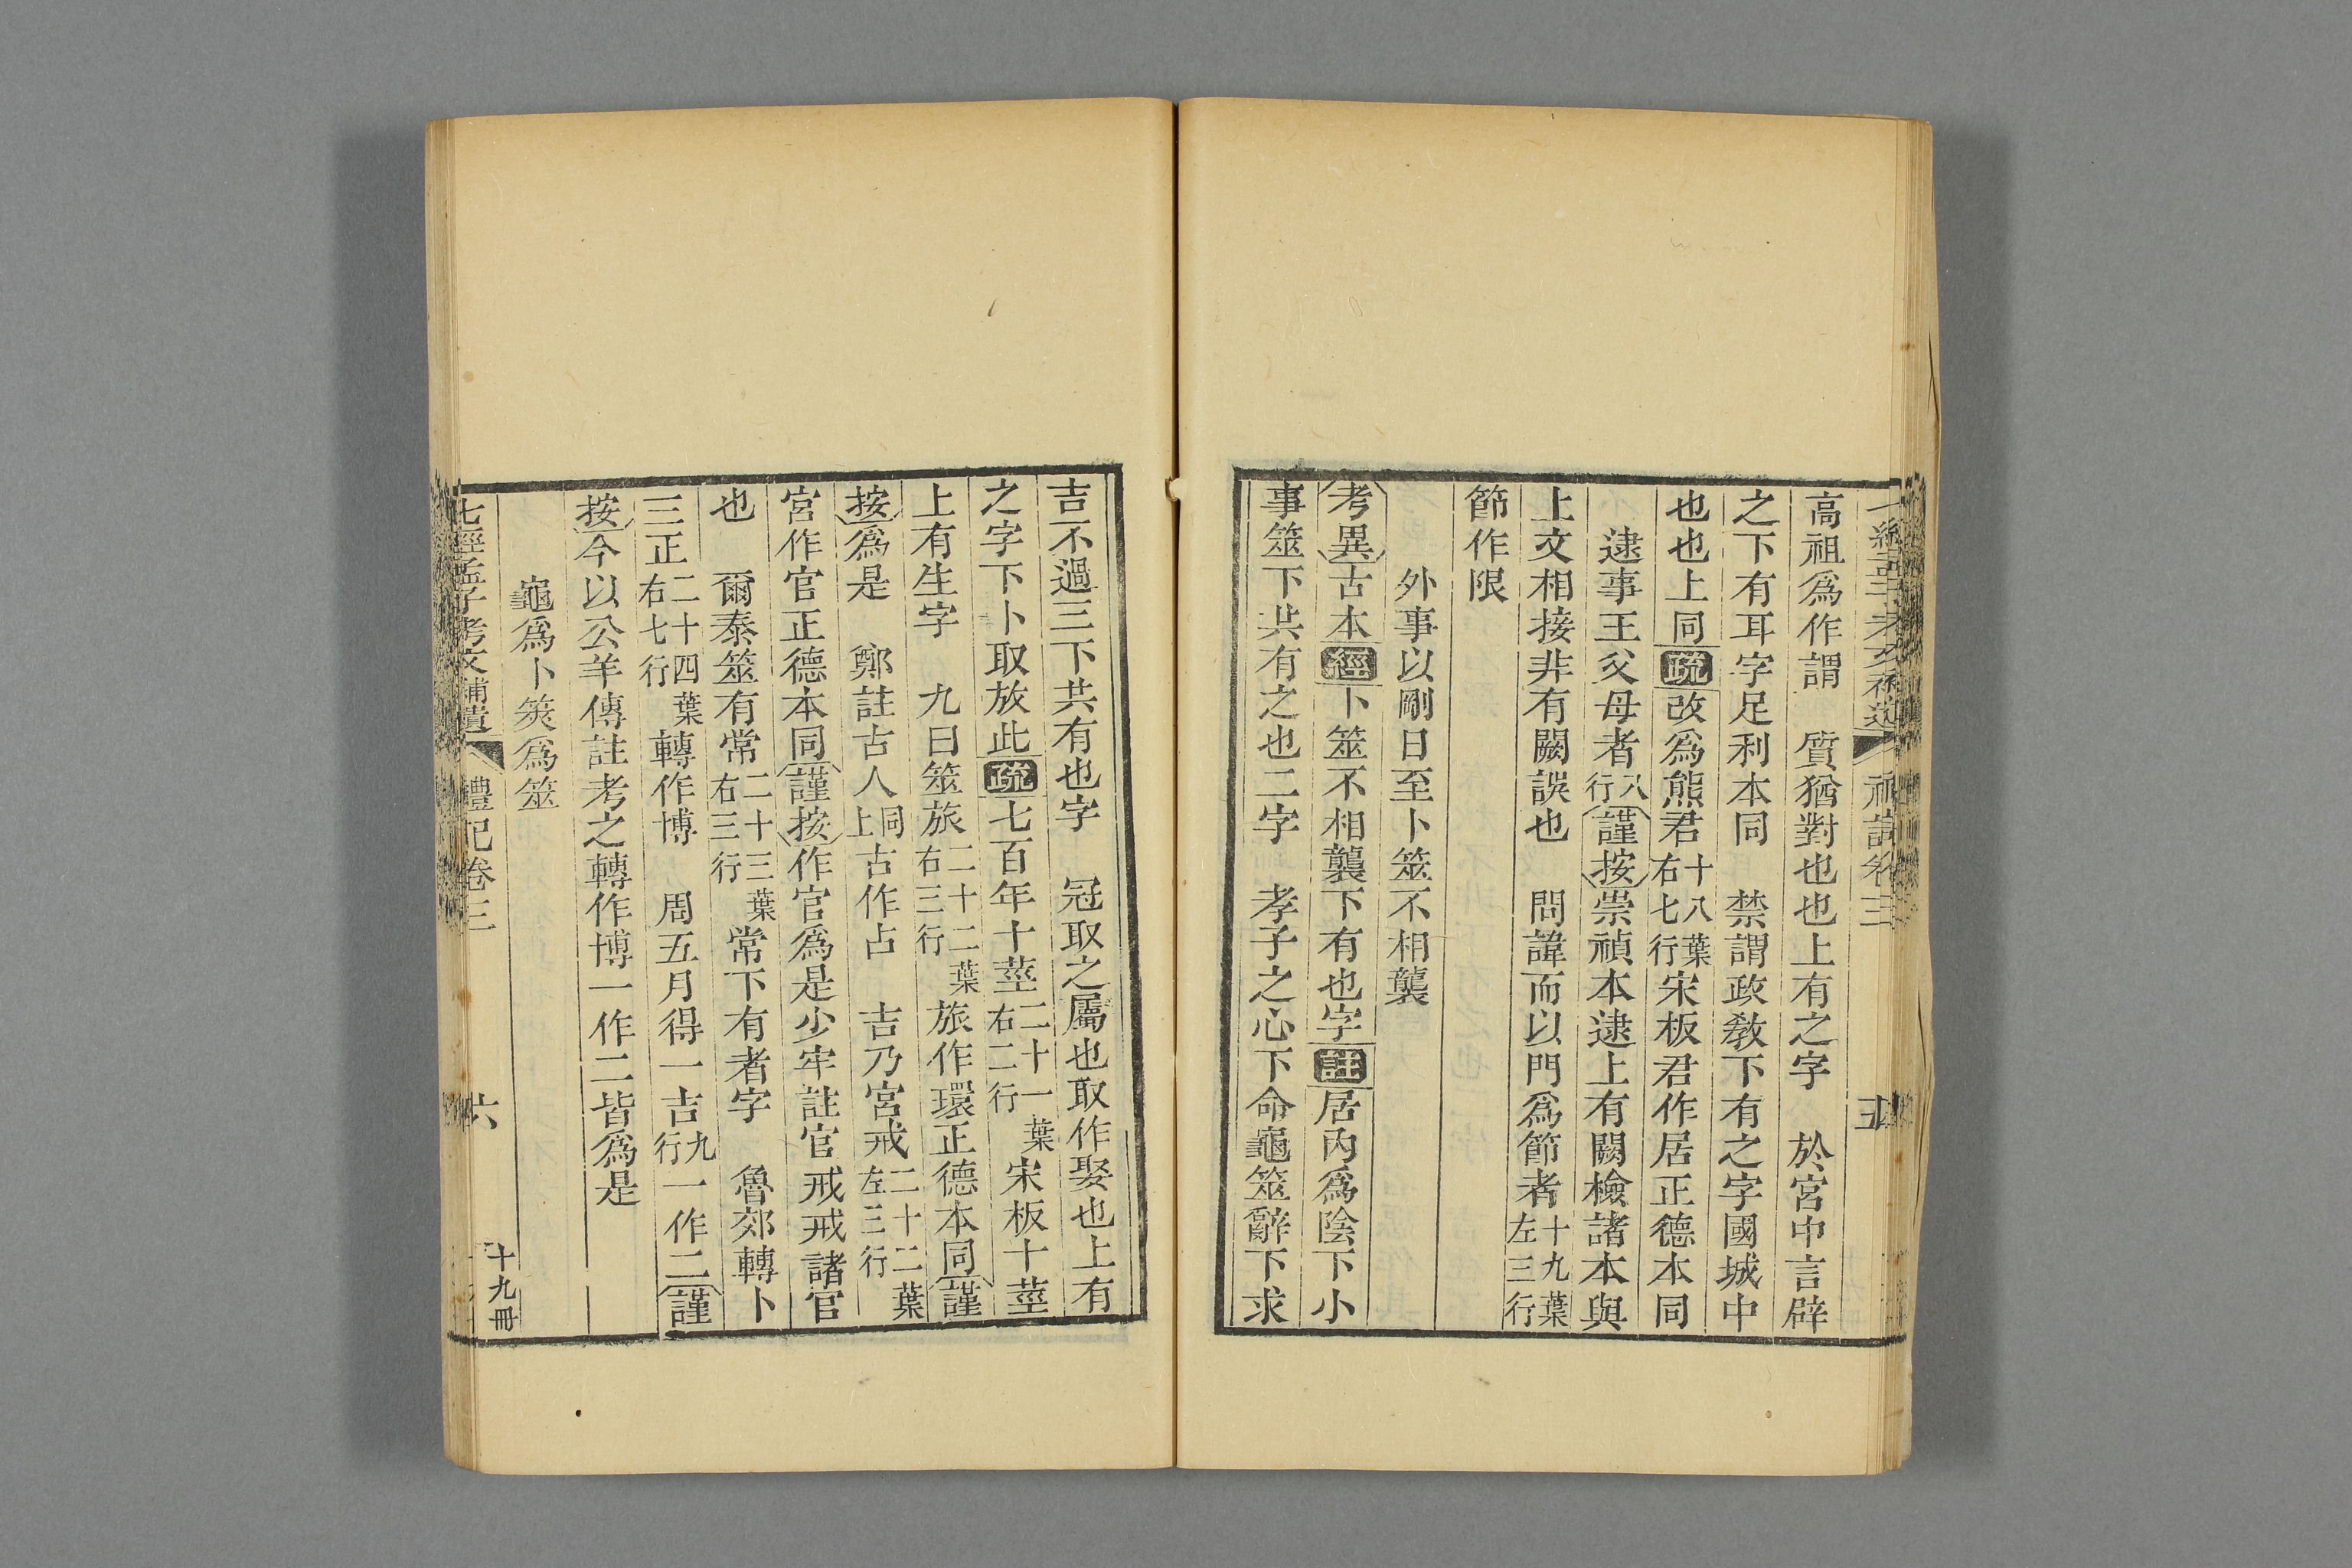 高祖爲作謂　質猶對也也上有之字　於宮中言辟
之下有耳字足利本同　禁謂政敎下有之字國城中
也也上同疏改爲熊君十八葉右七行宋板君作居正德本同
逮事王父母者八行謹按崇禎本逮上有闕檢諸本與
上文相接非有闕誤也　問諱而以門爲節者十九葉左三行
節作限
外事以剛日至卜筮不相襲
考異古本經卜筮不相襲下有也字註居內爲陰下小
事筮下共有之也二字　孝子之心下命龜筮辭下求
吉不過三下共有也字　冠取之屬也取作娶也上有
之字下卜取放此疏七百年十莖二十一葉右二行宋板十莖
上有生字　九曰筮旅二十二葉右三行旅作環正德本同謹
按爲是　鄭註古人同上古作占　吉乃宮戒二十二葉左三行
宮作官正德本同謹按作官爲是少牢註官戒戒諸官
也　爾泰筮有常二十三葉右三行常下有者字　魯郊轉卜
三正二十四葉右七行轉作博　周五月得一吉九行一作二謹
按今以公羊傳註考之轉作博一作二皆爲是
龜爲卜筴爲筮
七經孟子考文補遺　禮記卷三　六　十九冊